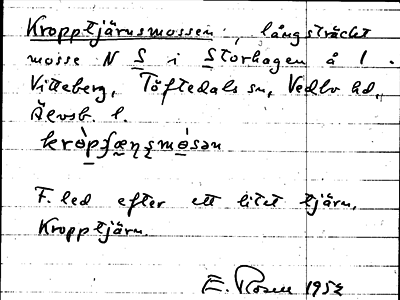 Kropptjärnsmossen, långsträckt
mosse N S i Storhagen å l.
Vitteberg, Töftedals sn, Vedbo hd,
Älvsb. l.
F. led efter ett litet tjärn,
Kropptjärn.
E. Rosell 1952